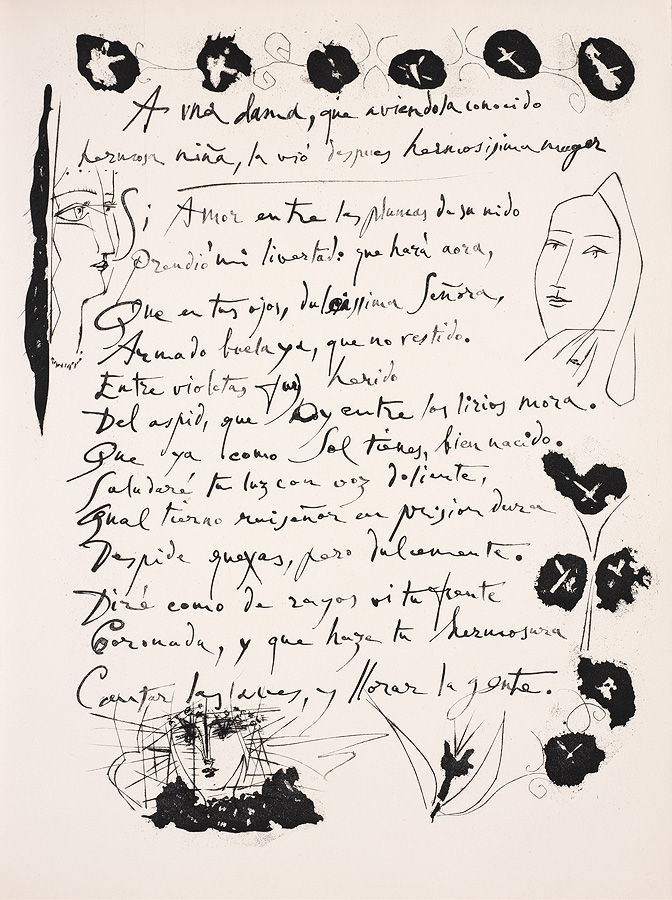 A una dama, que aviendola conocido
hermosa niña, la vió despues hermosissima muger
Si Amor entre las plumas de su nido
Prendió mi livertad: que hará aora,
Que en tus ojos, dulcissima Señora,
Armado buela ya, que no vestido.
Entre violetas fui herido
Del aspid, que oy entre los lirios mora.
Que ya como Sol tienes, bien nacido.
Saludaré tu luz con voz doliente,
Qual tierno ruiseñor en prision dura
Despide quexas, pero dulcemente.
Diré como de rayos vi tu frente
Coronada, y que haze tu hermosura
Cantar las aves, y llorar la gente.